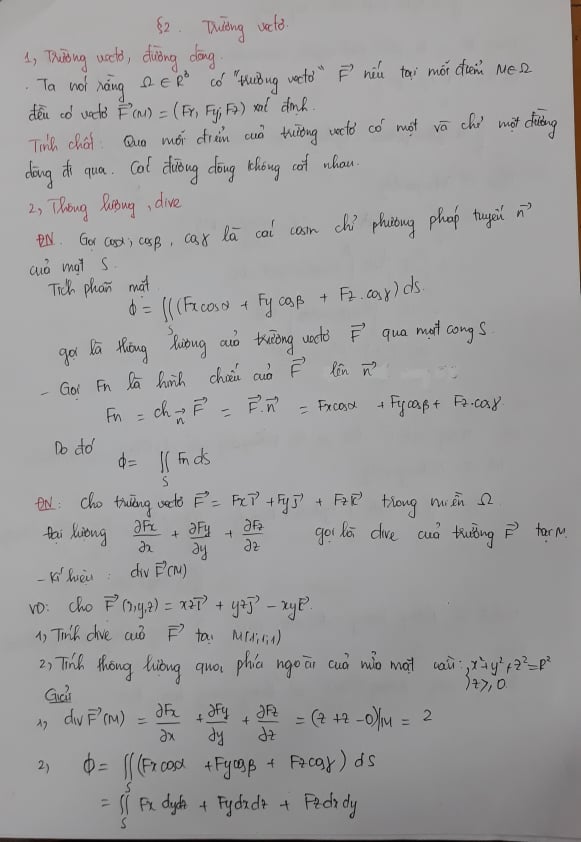 §2. Trường vectơ.
1, Trường vectơ, đường dòng.
. Ta nói rằng Ω ∈ R³ có "trường vectơ" F⃗ nếu tại mỗi điểm M∈Ω
đều có vectơ F⃗(M) = (Fx, Fy, Fz) xác định.
Tính chất: Qua mỗi điểm của trường vectơ có một và chỉ một đường
dòng đi qua. Các đường dòng không cắt nhau.
2, Thông lượng, dive
ĐN. Gọi cosα, cosβ, cosγ là các cosin chỉ phương pháp tuyến n⃗
của mặt S.
Tích phân mặt
ϕ = ∬_S (Fx cosα + Fy cosβ + Fz.cosγ) ds.
gọi là thông lượng của trường vectơ F⃗ qua mặt cong S.
- Gọi Fn là hình chiếu của F⃗ lên n⃗
Fn = ch_n⃗ F⃗ = F⃗.n⃗ = Fx cosα + Fy cosβ + Fz.cosγ.
Do đó
ϕ = ∬_S Fn ds
ĐN: Cho trường vectơ F⃗ = Fx i⃗ + Fy j⃗ + Fz k⃗ trong miền Ω
Đại lượng ∂Fx/∂x + ∂Fy/∂y + ∂Fz/∂z gọi là dive của trường F⃗ tại M.
- Kí hiệu: div F⃗(M)
VD: Cho F⃗(x,y,z) = xz i⃗ + yz j⃗ - xy k⃗.
1, Tính dive của F⃗ tại M(1,1,1)
2, Tính thông lượng qua phía ngoài của nửa mặt cầu: { x²+y²+z²=R²
z≥0
Giải
1, div F⃗(M) = ∂Fx/∂x + ∂Fy/∂y + ∂Fz/∂z = (z+z-0)|M = 2
2, ϕ = ∬_S (Fx cosα + Fy cosβ + Fz cosγ) dS
= ∬_S Fx dydz + Fy dxdz + Fz dxdy